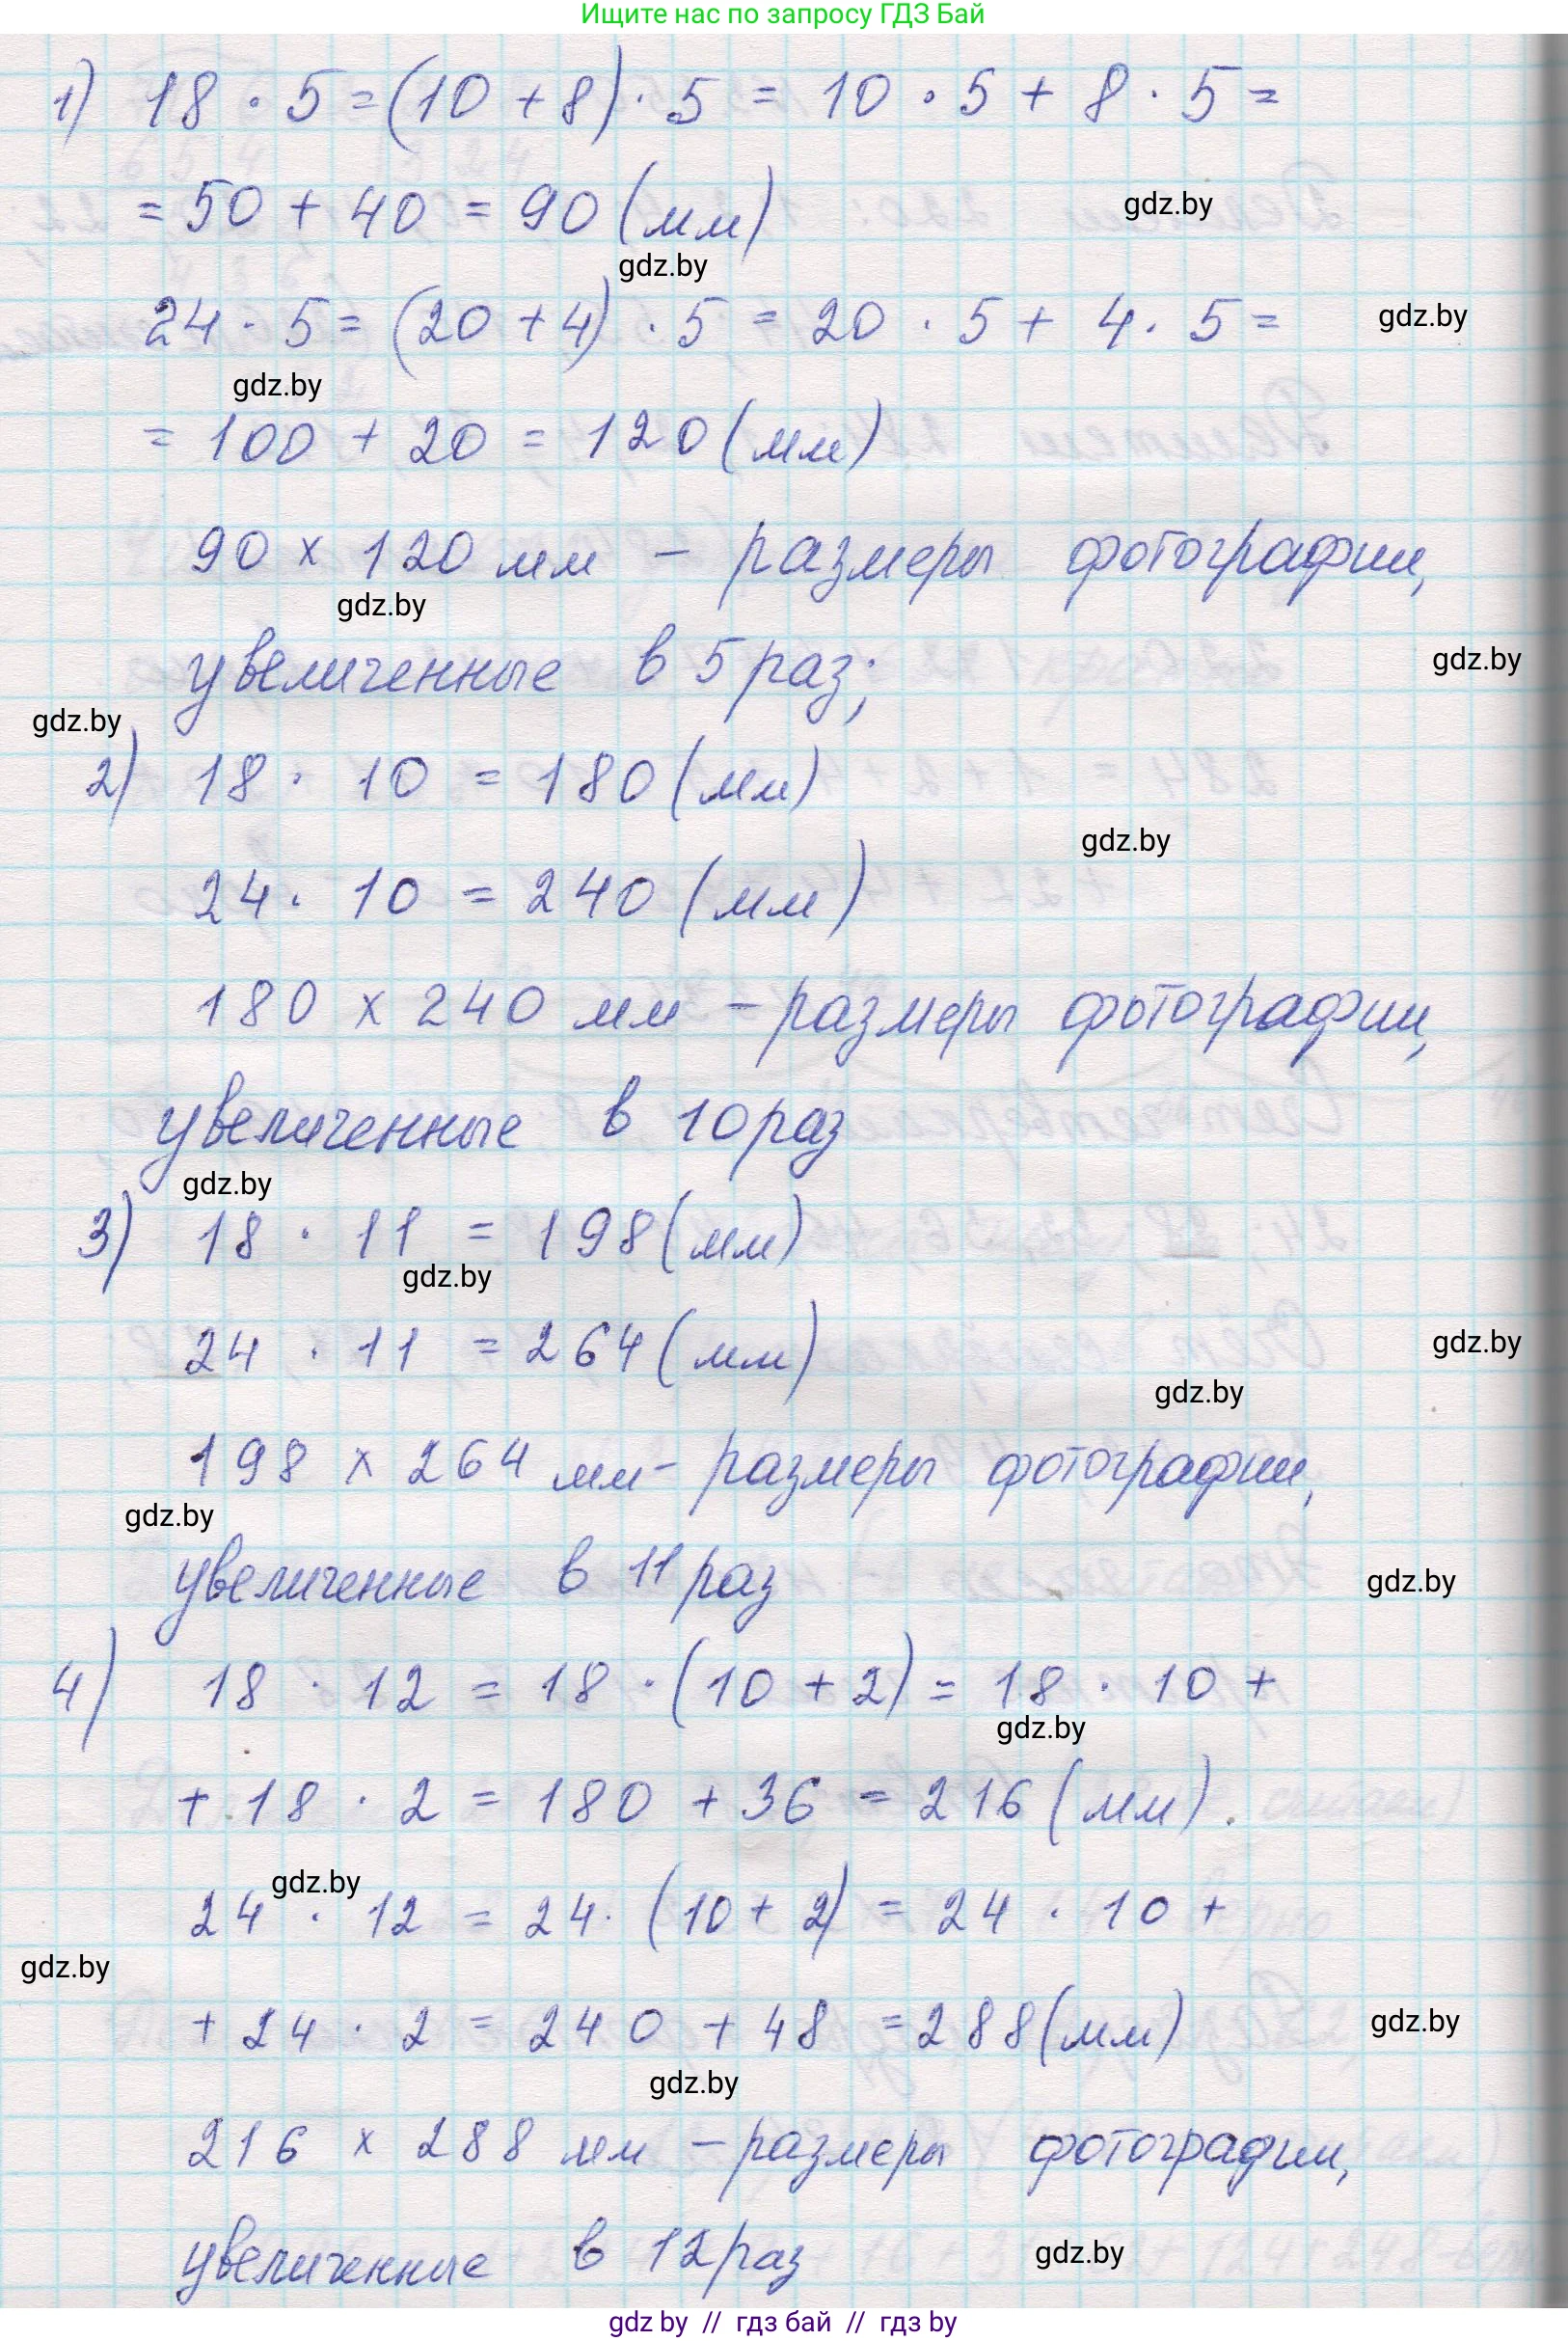 Ищите нас по запросу ГДЗ Бай
1) 18 · 5 = (10 + 8) · 5 = 10 · 5 + 8 · 5 =
= 50 + 40 = 90 (мм)
gdz.by
gdz.by
24 · 5 = (20 + 4) · 5 = 20 · 5 + 4 · 5 =
gdz.by
gdz.by
= 100 + 20 = 120 (мм)
90 х 120 мм – размеры фотографии,
gdz.by
увеличенные в 5 раз;
gdz.by
gdz.by
2) 18 · 10 = 180 (мм)
gdz.by
24 · 10 = 240 (мм)
180 х 240 мм – размеры фотографии,
увеличенные в 10 раз
gdz.by
3) 18 · 11 = 198 (мм)
gdz.by
24 · 11 = 264 (мм)
gdz.by
gdz.by
198 х 264 мм – размеры фотографии,
gdz.by
увеличенные в 11 раз
gdz.by
4) 18 · 12 = 18 · (10 + 2) = 18 · 10 +
gdz.by
+ 18 · 2 = 180 + 36 = 216 (мм).
gdz.by
24 · 12 = 24 · (10 + 2) = 24 · 10 +
gdz.by
+ 24 · 2 = 240 + 48 = 288 (мм)
gdz.by
gdz.by
216 х 288 мм – размеры фотографии,
увеличенные в 12 раз
gdz.by
gdz by // гдз бай // гдз by